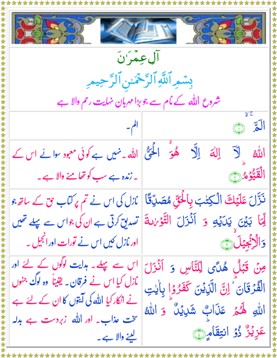 آل عِمْرَان
بِسْمِ اللَّهِ الرَّحْمَٰنِ الرَّحِيمِ
شروع اللہ کے نام سے جو بڑا مہربان نہایت رحم والا ہے
الٓمٓ ۚ
الم۔
اللَّهُ لَآ إِلَٰهَ إِلَّا هُوَ ۙ الْحَىُّ
الْقَيُّومُ ؕ
اللہ۔ نہیں ہے کوئی معبود سوائے اس کے
۔ زندہ ہے سب کو تھامنے والا ہے۔
نَزَّلَ عَلَيْكَ الْكِتٰبَ بِالْحَقِّ مُصَدِّقًا
لِّمَا بَيْنَ يَدَيْهِ وَ اَنْزَلَ التَّوْرٰىةَ
وَالْاِنْجِيْلَ ۙ
نازل کی اس نے تم پر کتاب حق کے ساتھ جو
تصدیق کرتی ہے ان کی جو اس سے پہلے تھیں
اور نازل کیں اس نے تورات اور انجیل ۔
مِنْ قَبْلُ هُدًى لِّلنَّاسِ وَ اَنْزَلَ
الْفُرْقَانَ ؕ اِنَّ الَّذِيْنَ كَفَرُوْا بِاٰيٰتِ
اللّٰهِ لَهُمْ عَذَابٌ شَدِيْدٌ ؕ وَ اللّٰهُ
عَزِيْزٌ ذُو انْتِقَامٍ ؕ
اس سے پہلے۔ ہدایت لوگوں کے لئے اور
نازل کیا اس نے فرقان۔ یقیناً وہ لوگ جنہوں
نے انکار کیا اللہ کی آیتوں کا ان کے لئے ہے
سخت عذاب۔ اور اللہ زبردست ہے بدلہ
لینے والا ہے۔